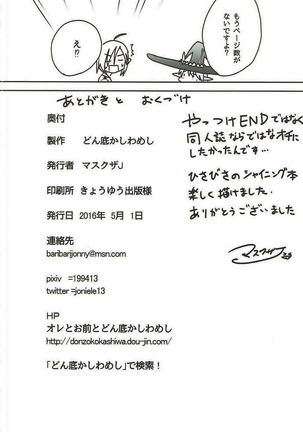 もうページ数が
ないですよ?
え!?
あとがきと おくづけ
奥付
製作 どん底かしわめし
発行者 マスクザJ
印刷所 きょうゆう出版様
発行日 2016年 5月 1日
連絡先
baribarjonny@msn.com
pixiv =199413
twitter =joniele13
HP
オレとお前とどん底かしわめし
http://donzokokashiwa.dou-jin.com/
「どん底かしわめし」で検索!
やっつけENDではなく
同人誌ならではなオチに
したかったんです…
ひさびさのシャイニング本
楽しく描けました。
ありがとうございました
マスクザJ